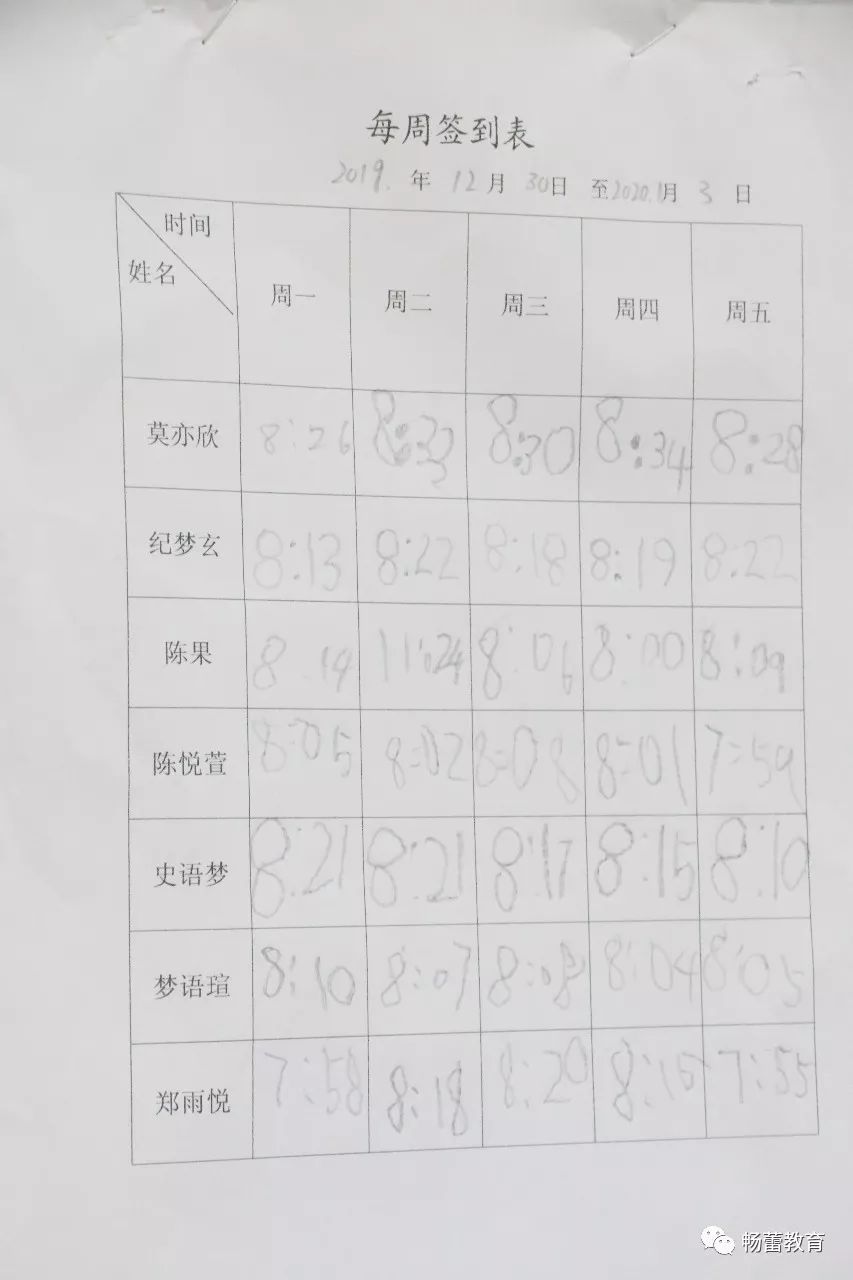 每周签到表
2019.年 12月 30日 至2020.1月 3 日
时间
姓名 周一 周二 周三 周四 周五
莫亦欣 8:26 8:33 8:30 8:34 8:28
纪梦玄 8:13 8:22 8:18 8:19 8:22
陈果 8:14 11:24 8:06 8:00 8:09
陈悦萱 8:05 8:02 8:08 8:01 7:59
史语梦 8:21 8:21 8:17 8:15 8:10
梦语瑄 8:10 8:07 8:08 8:04 8:05
郑雨悦 7:58 8:18 8:20 8:15 7:55
畅蕾教育